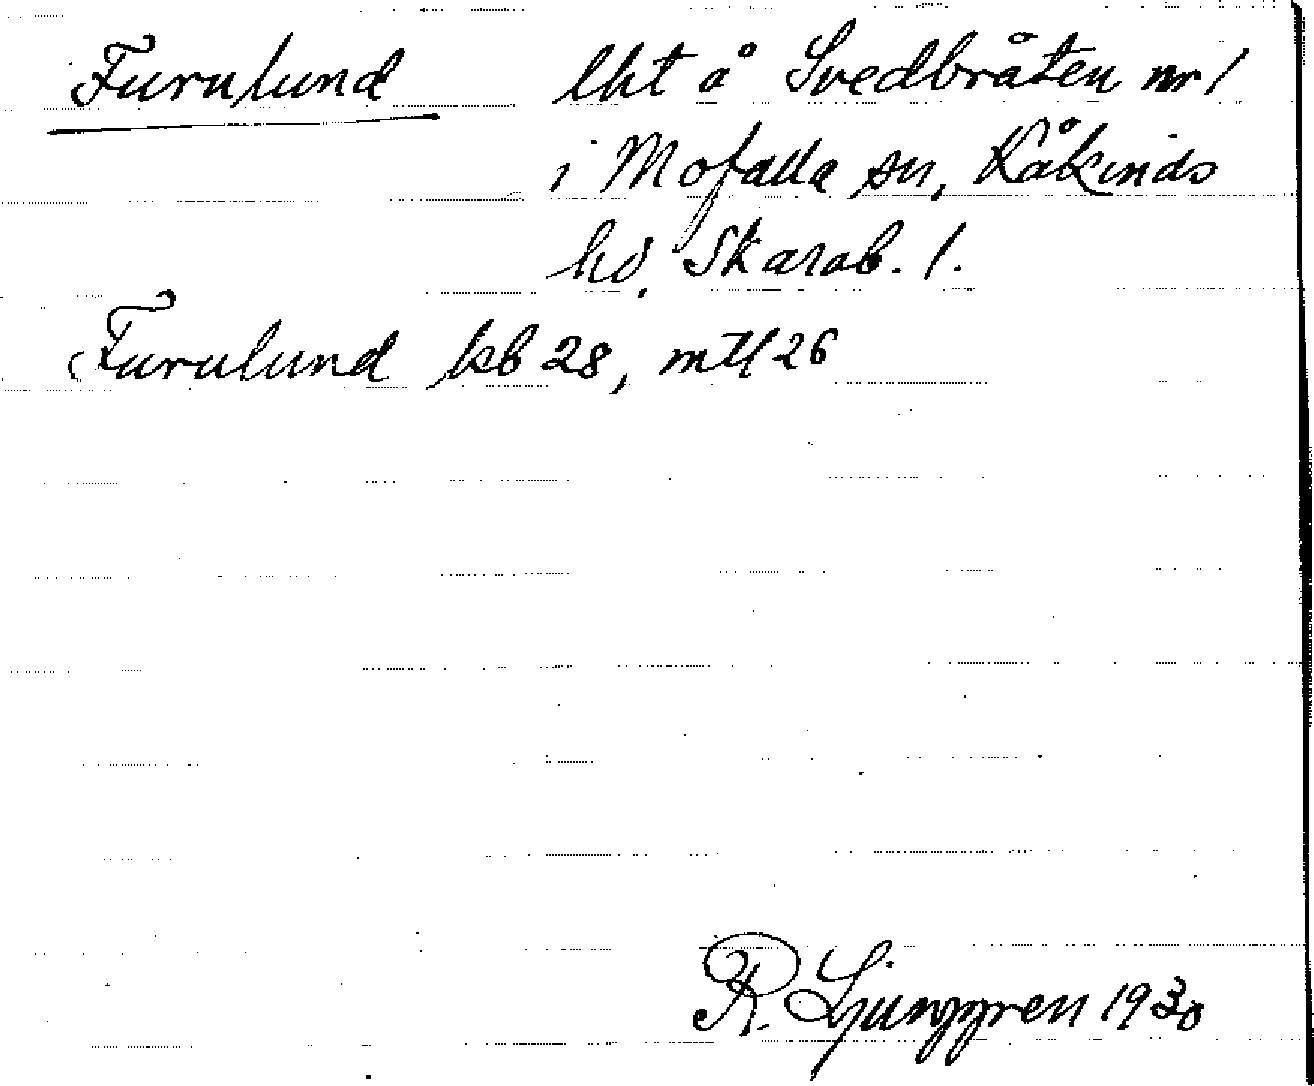 Furulund lht å Svedbråten nr 1
i Mofalla sn, Kåkinds
hd, Skarab. l.
Furulund kb 28, mtl 26
R. Ljunggren 1930